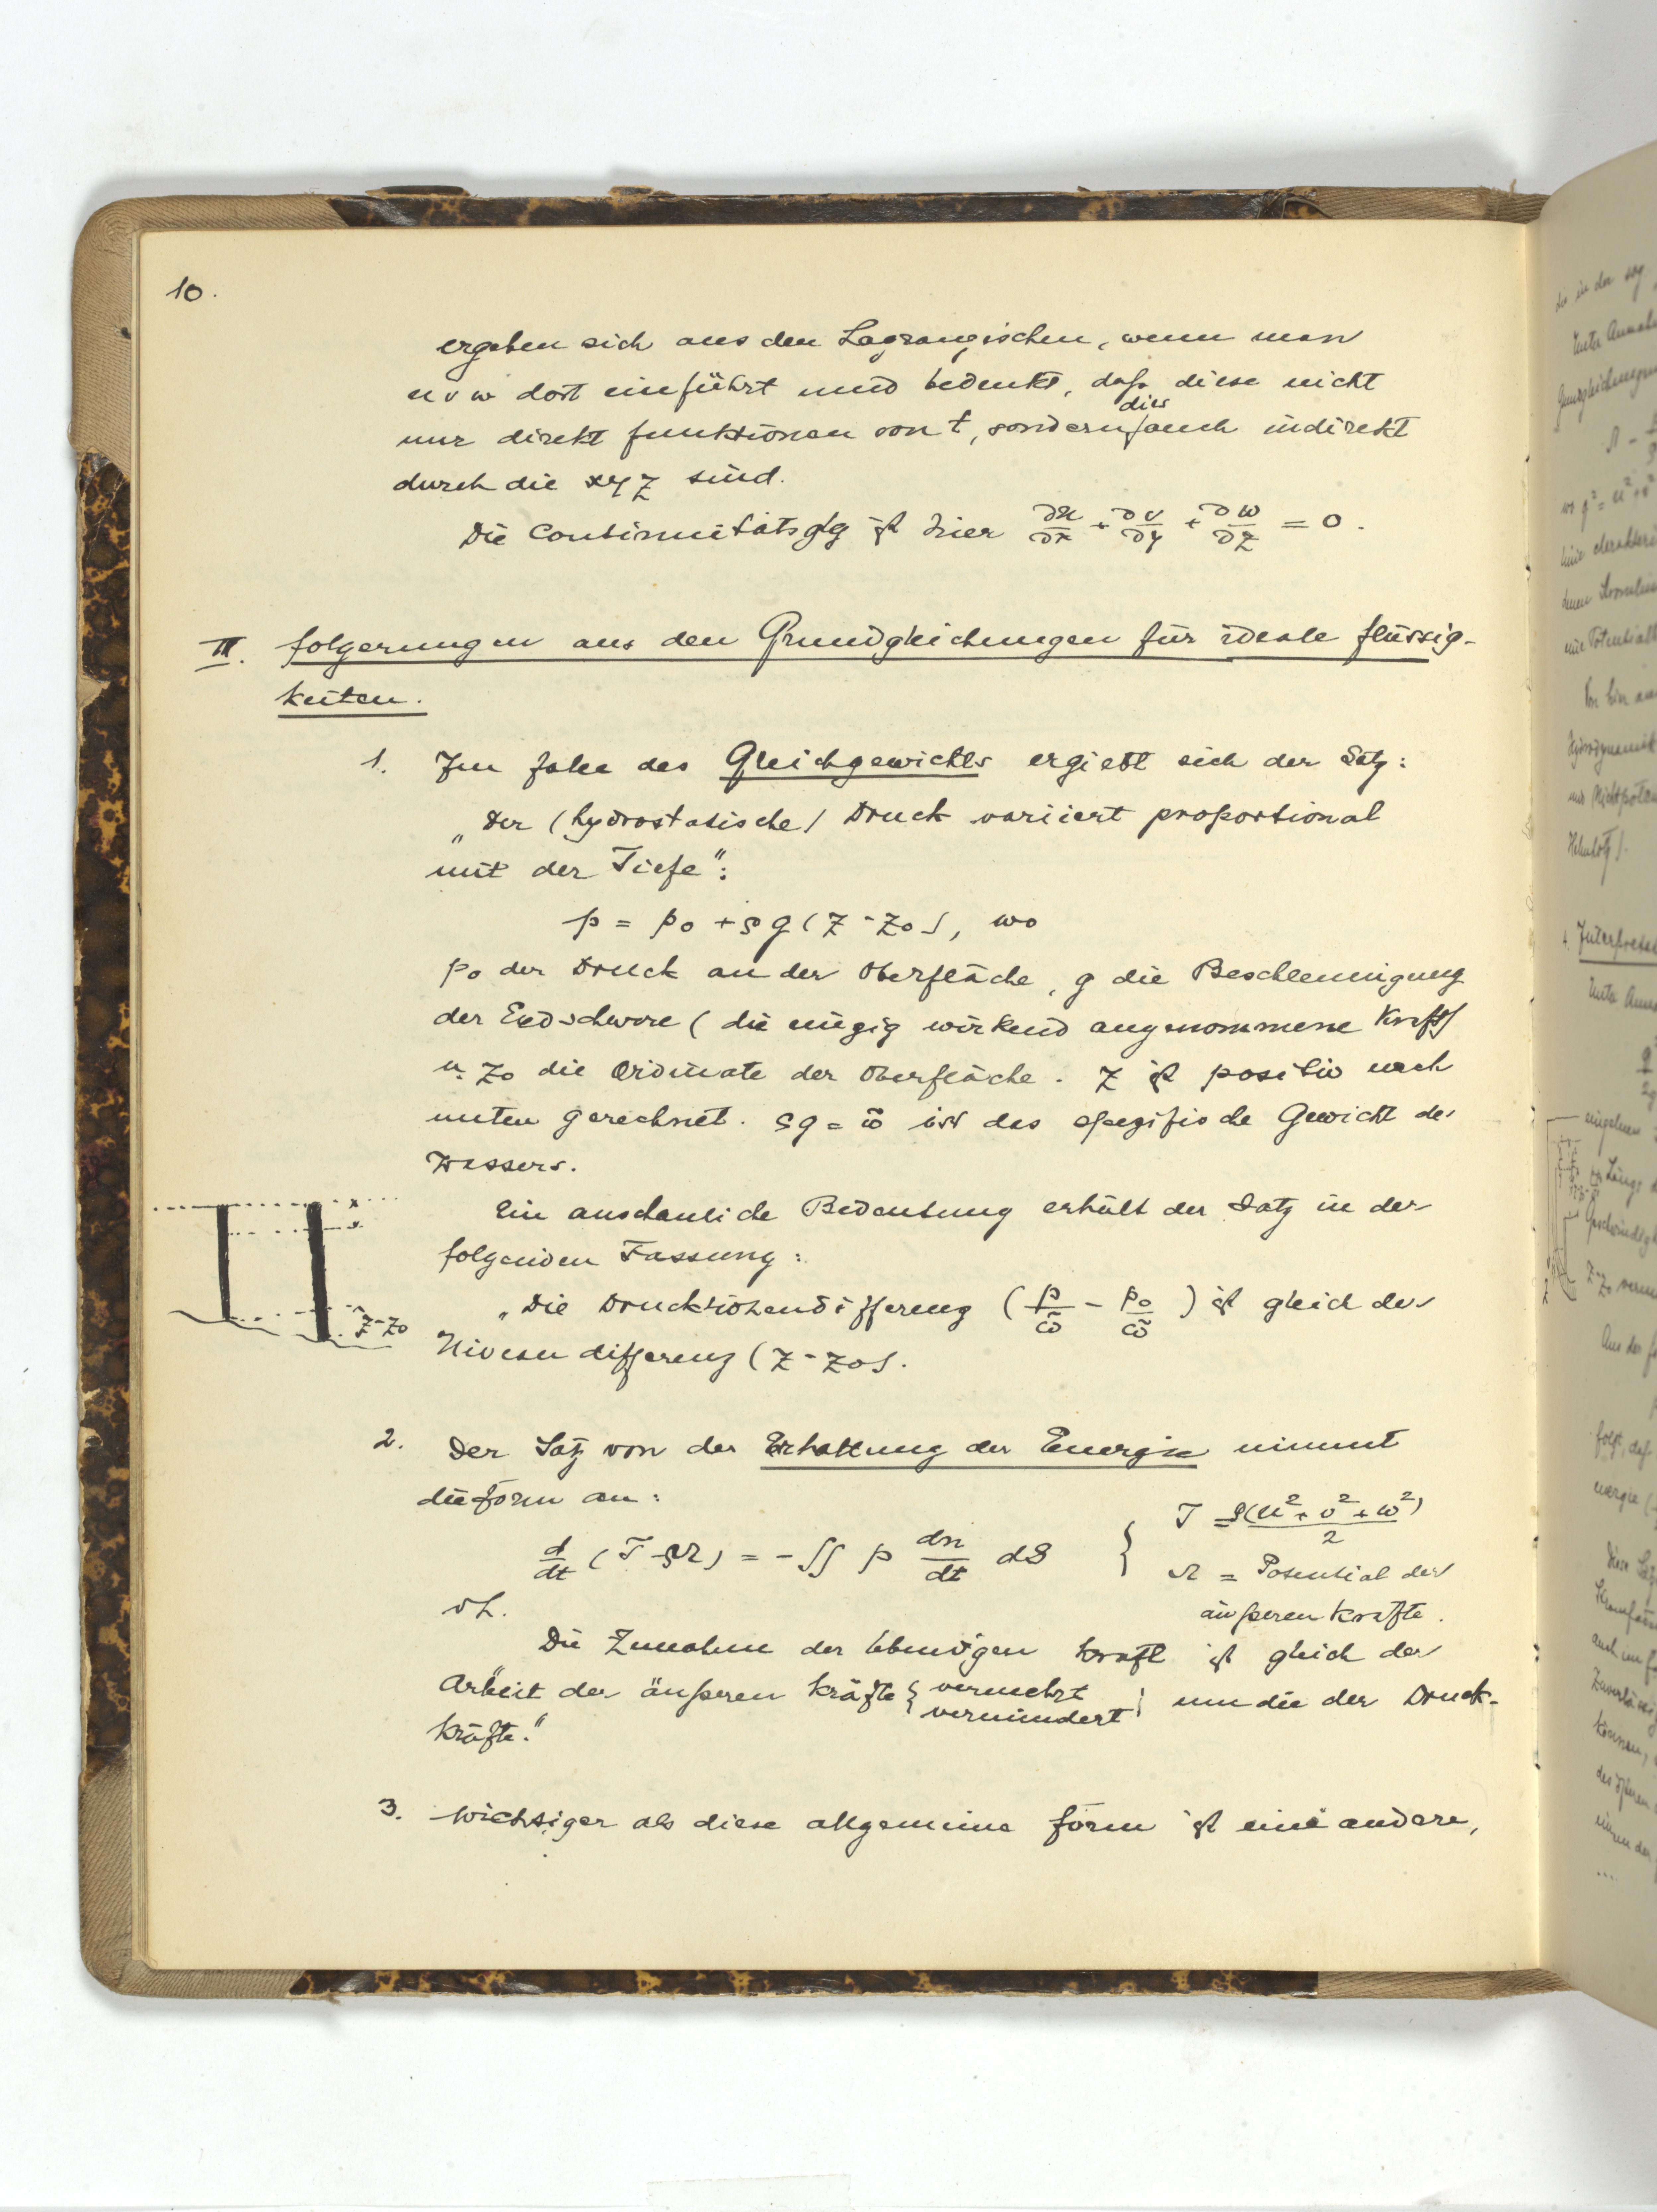 10.
ergeben sich aus den Lagrangischen, wenn man
u v w dort einführt und bedenkt, daß diese nicht
nur direkt funktionen von t, sondern dies auch indirekt
durch die x y z sind.
Die Continuitätsglg ist hier ∂u/∂x + ∂v/∂y + ∂w/∂z = 0.
II. folgerungen aus den Grundgleichungen für ideale flüssig-
keiten.
1. Im falle des Gleichgewichts ergiebt sich der Satz:
„Der (hydrostatische) Druck variiert proportional
mit der Tiefe":
p = p₀ + ρg(z - z₀), wo
p₀ der Druck an der Oberfläche, g die Beschleunigung
der Erdschwere (die einzig wirkend angenommene Kraft)
u. z₀ die Ordinate der Oberfläche. z ist positiv nach
unten gerechnet. ρg = ω̃ ist das spezifische Gewicht des
Wassers.
Ein anschauliche Bedeutung erhält der Satz in der
folgenden Fassung:
„Die Druckhöhendifferenz (p/ω̃ - p₀/ω̃) ist gleich der
Niveaudifferenz (z - z₀).
z-z₀
2. Der Satz von der Erhaltung der Energie nimmt
die form an:
d/dt (T - ρΩ) = - ∬ p dn/dt dS { T = ρ(u² + v² + w²)/2
Ω = Potential der
äußeren Kräfte.
d h.
Die Zunahme der lebendigen Kraft ist gleich der
Arbeit der äußeren Kräfte { vermehrt
vermindert } um die der Druck-
kräfte."
3. Wichtiger als diese allgemeine form ist eine andere,